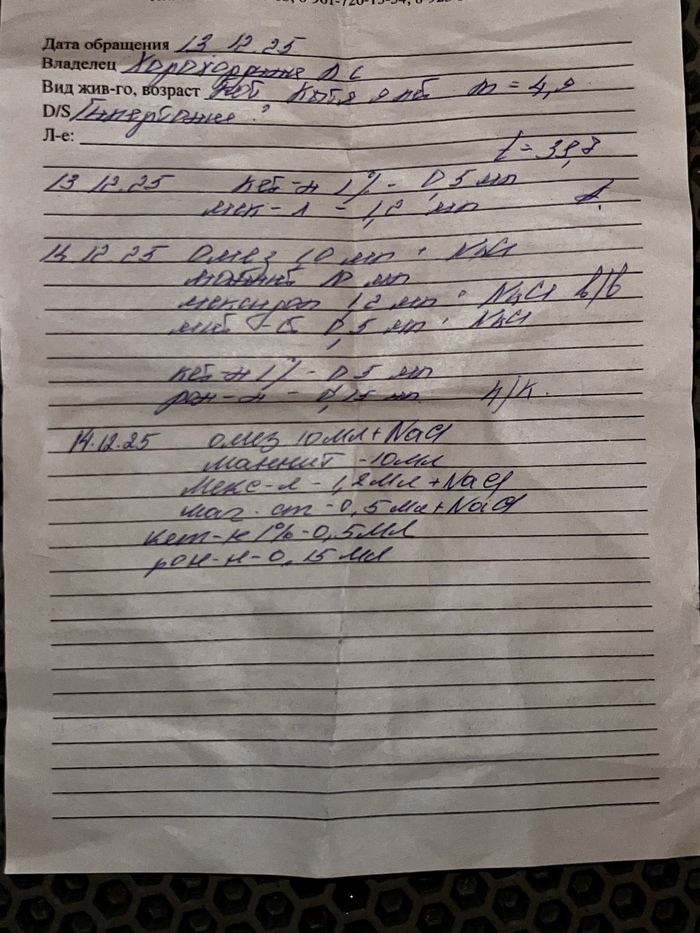 Дата обращения 13 12.25
Владелец
Вид жив-го, возраст кот m = 4,2
D/S Гипертония ?
Л-е:
t = 39,8
13 12.25 кет-н 1% - 0,5 мл
мек-л - 1,2 мл
14.12.25 омез 10 мл + NaCl
маннит 10 мл
мексидол 1,2 мл + NaCl в/в
0,5 мл + NaCl
кет-н 1% - 0,5 мл
рон-н - 0,15 мл п/к.
14.12.25 омез 10мл + NaCl
маннит -10мл
мекс-л - 1,2мл + NaCl
маг. ст - 0,5мл + NaCl
кет-н 1% - 0,5мл
рон-н - 0,15мл